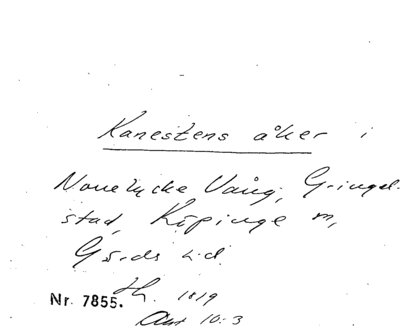 Kanestens åker i
Vång, Gringel-
stad, Köpinge m,
Gärds hd.
Nr. 7855. 1819
Akt 10:3